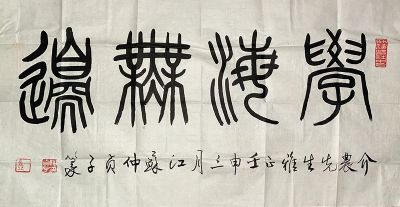 學海無邊
介農先生雅正壬申三月江蘇仲貞子篆